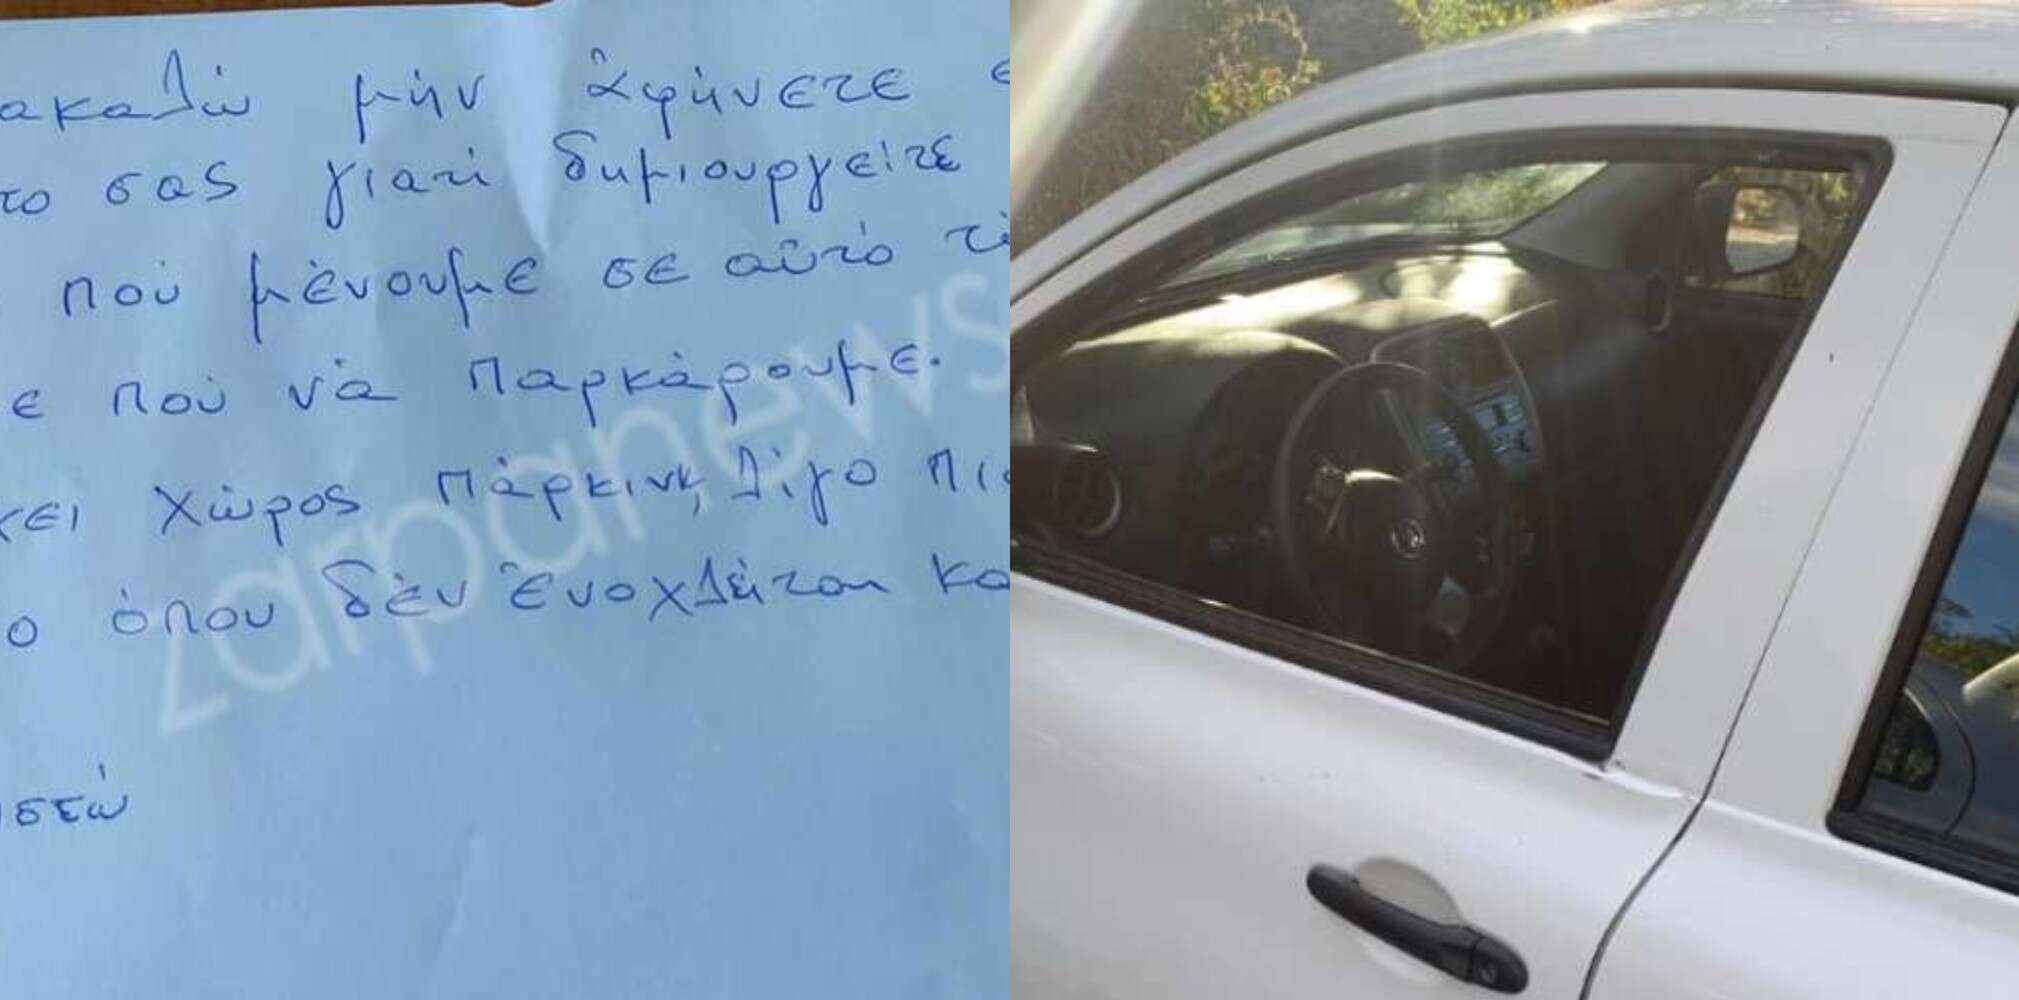 ακαλώ μήν ἀφήνετε ε
το σας γιατί δημιουργείτε
πού μένουμε σε αὐτό τ
ε πού νά παρκάρουμε.
χει χώρος πάρκινκ λίγο πι
ο ὁπου δέν ἐνοχλείται κα
ιστώ
zarpanews